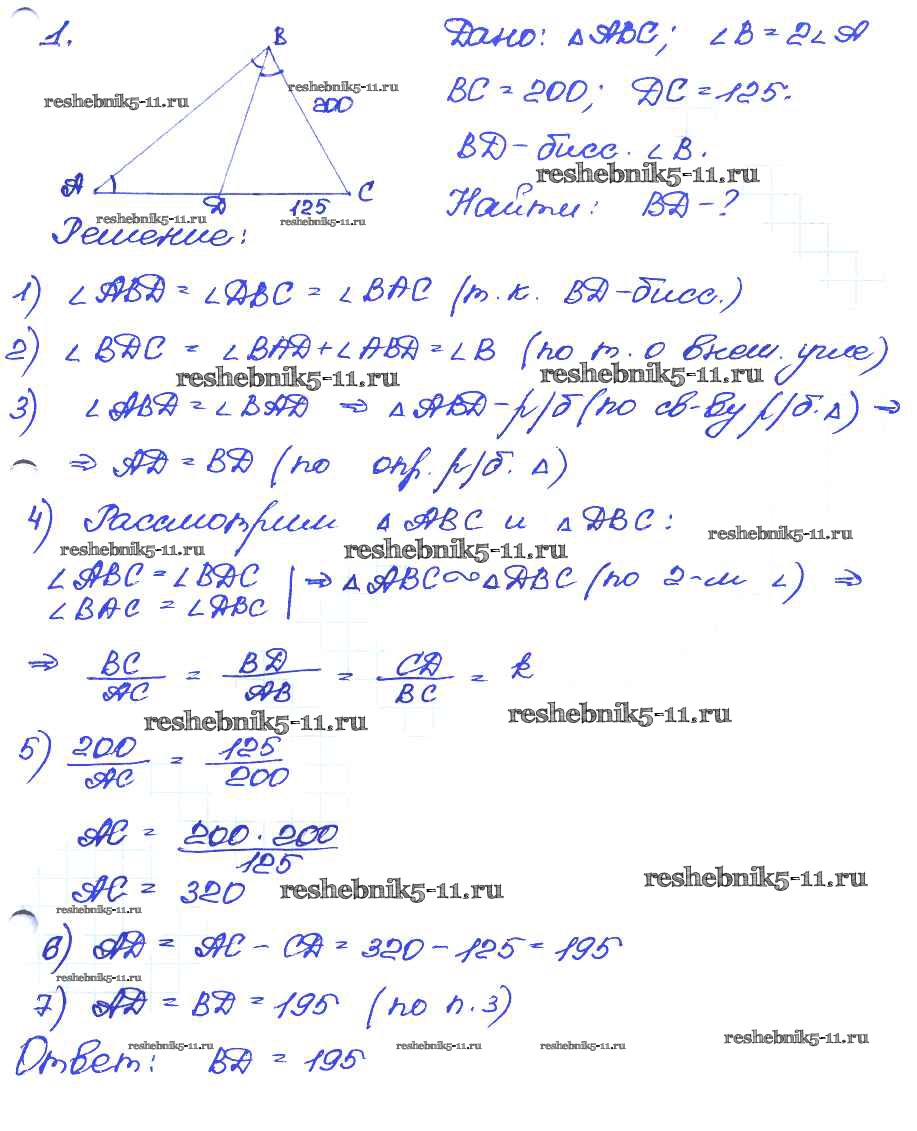 1.
B
Дано: △ ABC; ∠B = 2∠A
reshebnik5-11.ru
reshebnik5-11.ru
200
BC = 200; DC = 125.
BD - бисс. ∠B.
reshebnik5-11.ru
A
D
125
C
Найти: BD - ?
reshebnik5-11.ru
reshebnik5-11.ru
Решение:
1) ∠ABD = ∠DBC = ∠BAC (т.к. BD - бисс.)
2) ∠BDC = ∠BAD + ∠ABD = ∠B (по т. о внеш. угле)
reshebnik5-11.ru
reshebnik5-11.ru
3) ∠ABD = ∠BAD ⇒ △ ABD - р/б (по св-ву р/б. △) ⇒
⇒ AD = BD (по опр. р/б. △)
4) Рассмотрим △ ABC и △ DBC:
reshebnik5-11.ru
reshebnik5-11.ru
reshebnik5-11.ru
∠ABC = ∠BDC | ⇒ △ ABC ∾ △ DBC (по 2-м ∠) ⇒
∠BAC = ∠DBC
⇒ BC/AC = BD/AB = CD/BC = k
reshebnik5-11.ru
reshebnik5-11.ru
5) 200/AC = 125/200
AC = 200 · 200/125
AC = 320
reshebnik5-11.ru
reshebnik5-11.ru
reshebnik5-11.ru
6) AD = AC - CD = 320 - 125 = 195
reshebnik5-11.ru
7) AD = BD = 195 (по п. 3)
reshebnik5-11.ru
reshebnik5-11.ru
reshebnik5-11.ru
reshebnik5-11.ru
Ответ: BD = 195